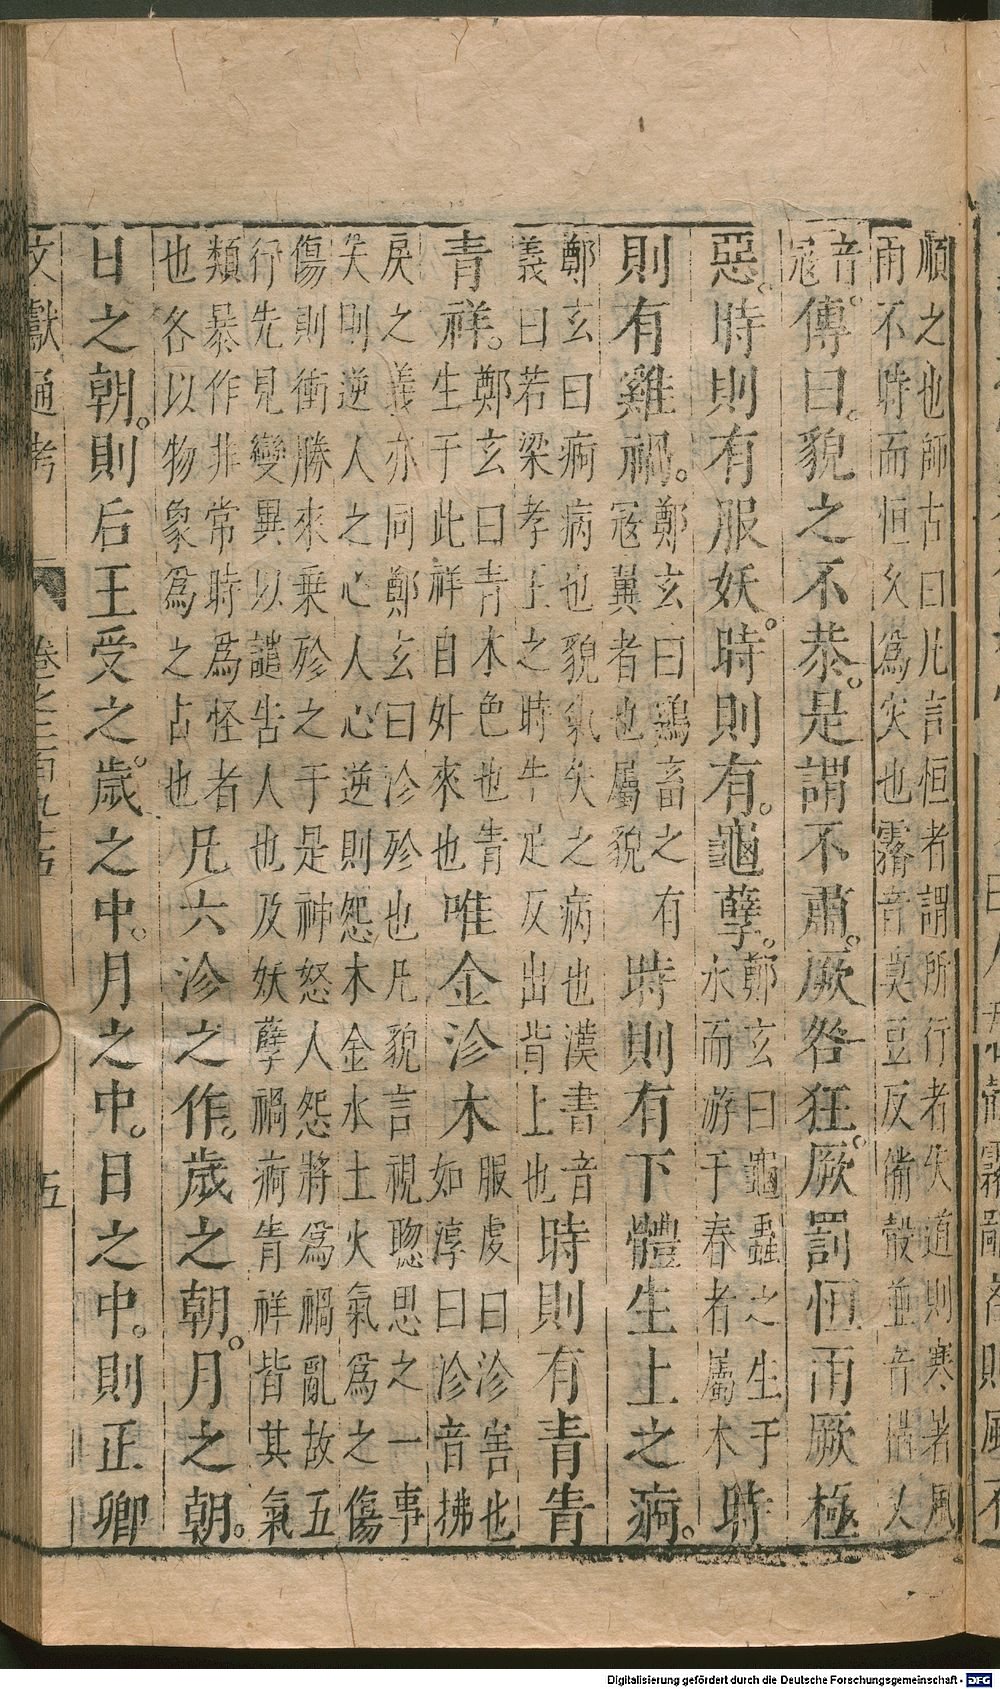 順之也師古曰凡言恒者謂所行者失道則寒暑風
雨不時而恒久爲灾也霿音莫豆反偹㝅並音構人
音寇傳曰貌之不恭是謂不肅厥咎狂厥罰恒雨厥極
惡時則有服妖時則有龜孽鄭玄曰龜蟲之生于水而游于春者屬木時
則有雞禍鄭玄曰鷄畜之有冠翼者也屬貌時則有下體生上之痾
鄭玄曰痾病也貌氣失之病也漢書音義曰若梁孝王之時牛足反出背上也時則有青眚
青祥鄭玄曰青木色也青生于此祥自外來也唯金沴木服虔曰沴害也如淳曰沴音拂
戾之義亦同鄭玄曰沴殄也凡貌言視聰思之一事
失則逆人之心人心逆則怨木金水土火氣爲之傷
傷則衝勝來乗殄之于是神怒人怨將爲禍亂故五
行先見變異以譴告人也及妖孽禍痾眚祥皆其氣
類暴作非常時爲怪者也各以物象爲之占也凡六沴之作歲之朝月之朝
日之朝則后王受之歲之中月之中日之中則正卿
文獻通考 卷之三百九十五 五
Digitalisierung gefördert durch die Deutsche Forschungsgemeinschaft - DFG